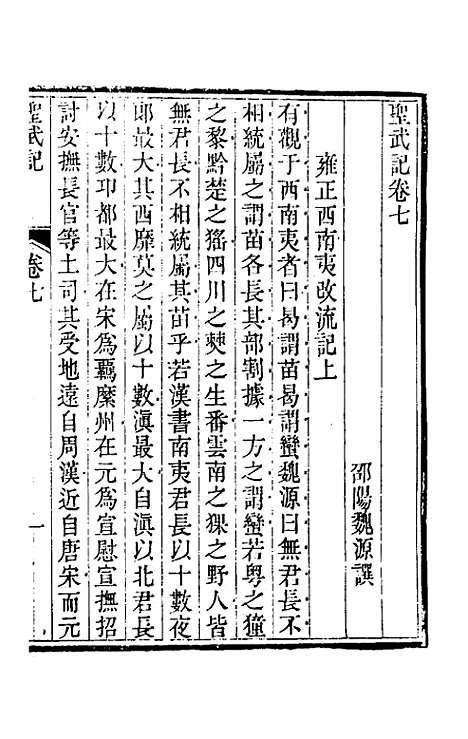 聖武記卷七
邵陽魏源譔
雍正西南夷改流記上
有觀于西南夷者曰曷謂苗曷謂蠻魏源曰無君長不
相統屬之謂苗各長其部割據一方之謂蠻若粤之獞
之黎黔楚之猺四川之僰之生番雲南之猓之野人皆
無君長不相統屬其苗乎若漢書南夷君長以十數夜
郎最大其西靡莫之屬以十數滇最大自滇以北君長
以十數邛都最大在宋爲羈縻州在元爲宣慰宣撫招
討安撫長官等土司其受地遠自周漢近自唐宋而元
聖武記
卷七
一